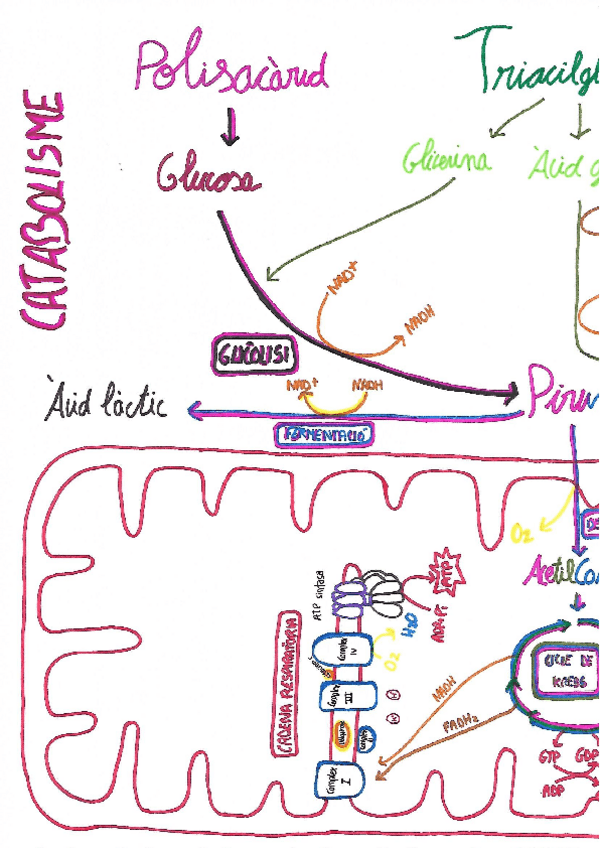 CATABOLISME
Polisacàrid
Triacilgl
Glucosa
Glicerina
Àcid g
NAD+
NADH
GLICÒLISI
NAD+
NADH
Àcid làctic
Piru
FERMENTACIÓ
O2
AcetilCo
ATP sintasa
ATP
ADP+Pi
H2O
O2
CADENA RESPIRATÒRIA
Complex
IV
Complex
III
Complex
I
H
H
NADH
FADH2
CICLE DE
KREBS
GTP
GDP
ADP